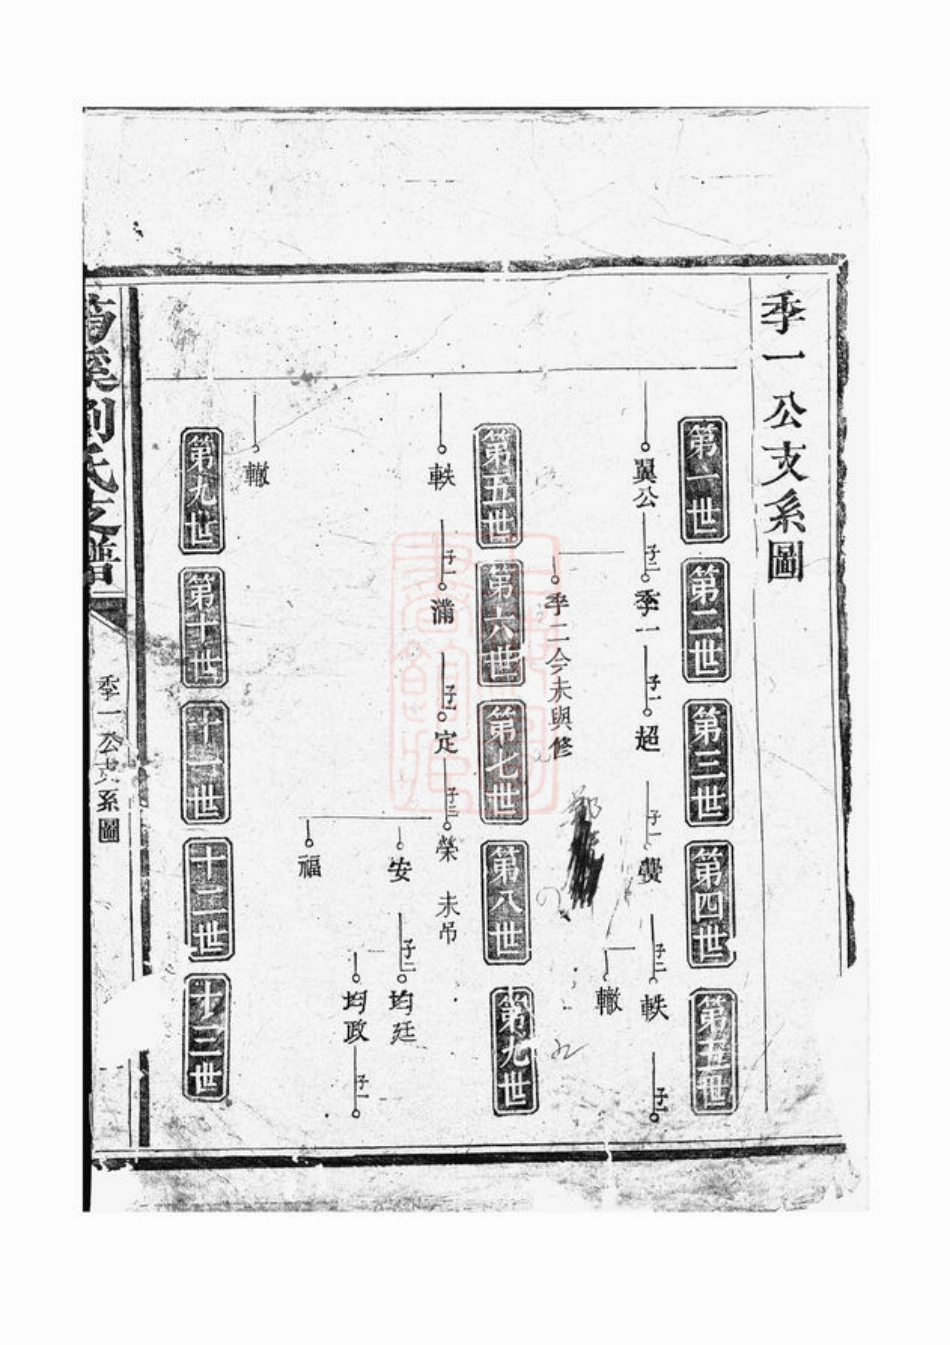 季一公支系圖
第一世
第二世
第三世
第四世
第五世
翼公
子二
季一
子一
超
子一
子二
軼
子一
轍
季二今未與修
第五世
第六世
第七世
第八世
第九世
軼
子一
滿
子一
定
子三
榮 未吊
安
子二
均廷
均政
子一
福
轍
第九世
第十世
十一世
十二世
十三世
劉氏支譜
季一公支系圖